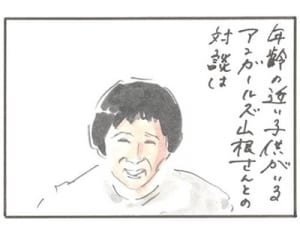 年齢の近い子供がいる
アンガールズ山根さんとの
対談は